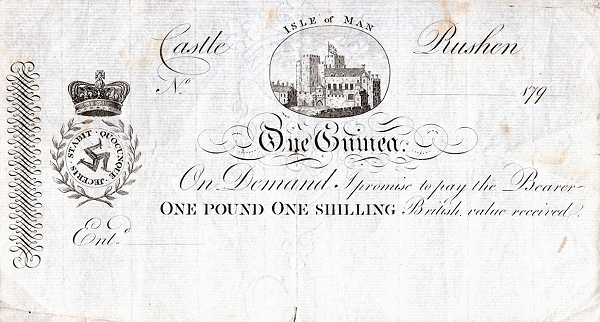 ISLE of MAN
Castle Rushen
No 179
STABIT QUOCUNQUE JECERIS
One Guinea.
On Demand I promise to pay the Bearer
ONE POUND ONE SHILLING British, value received.
Entd.